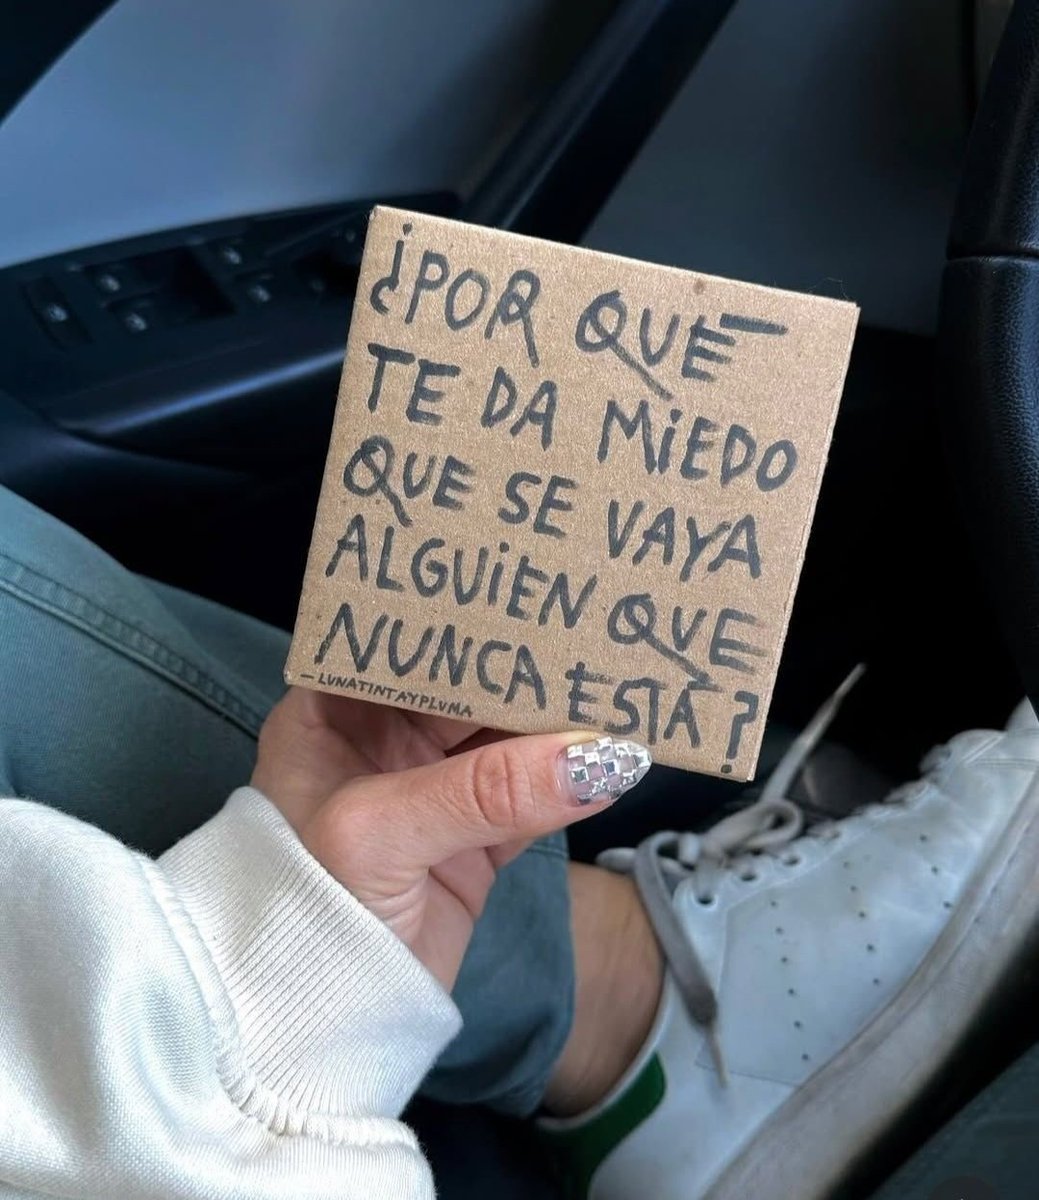 ¿POR QUÉ
TE DA MIEDO
QUE SE VAYA
ALGUIEN QUE
NUNCA ESTÁ?
—LUNATINTAYPLUMA